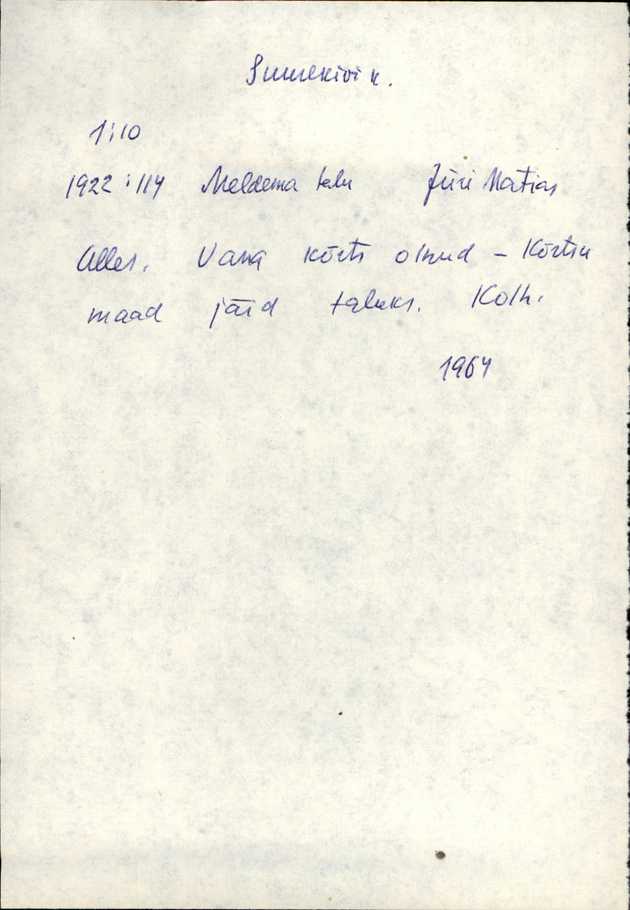 Suurekivi k.
1:10
1922:114 Meldema talu Jüri Matias
Alles. Vana kõrts olnud – Kõrtsu
maad jäid taluks. Kolh.
1964